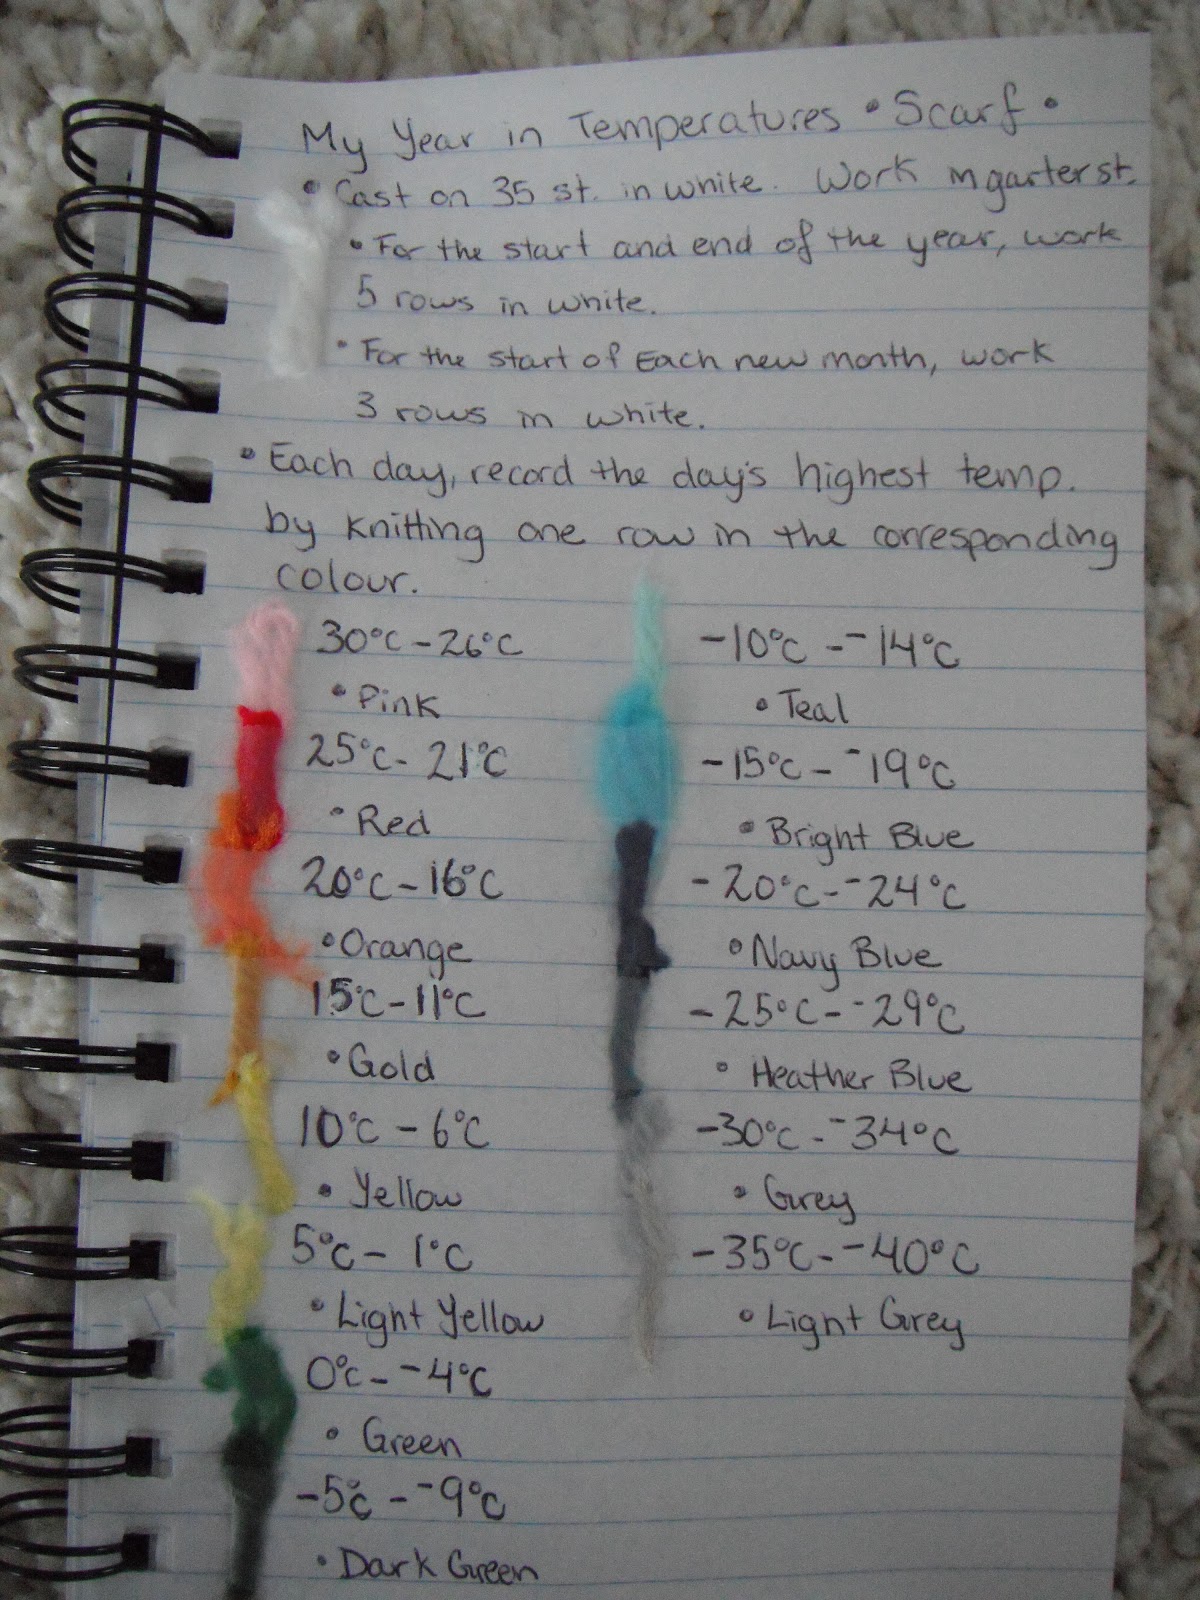 My Year in Temperatures • Scarf •
• Cast on 35 st. in white. Work in garter st.
• For the start and end of the year, work
5 rows in white.
• For the start of Each new month, work
3 rows in white.
• Each day, record the day's highest temp.
by knitting one row in the corresponding
colour.
30°C - 26°C
• Pink
25°C - 21°C
• Red
20°C - 16°C
• Orange
15°C - 11°C
• Gold
10°C - 6°C
• Yellow
5°C - 1°C
• Light Yellow
0°C - -4°C
• Green
-5°C - -9°C
• Dark Green
-10°C - -14°C
• Teal
-15°C - -19°C
• Bright Blue
-20°C - -24°C
• Navy Blue
-25°C - -29°C
• Heather Blue
-30°C - -34°C
• Grey
-35°C - -40°C
• Light Grey